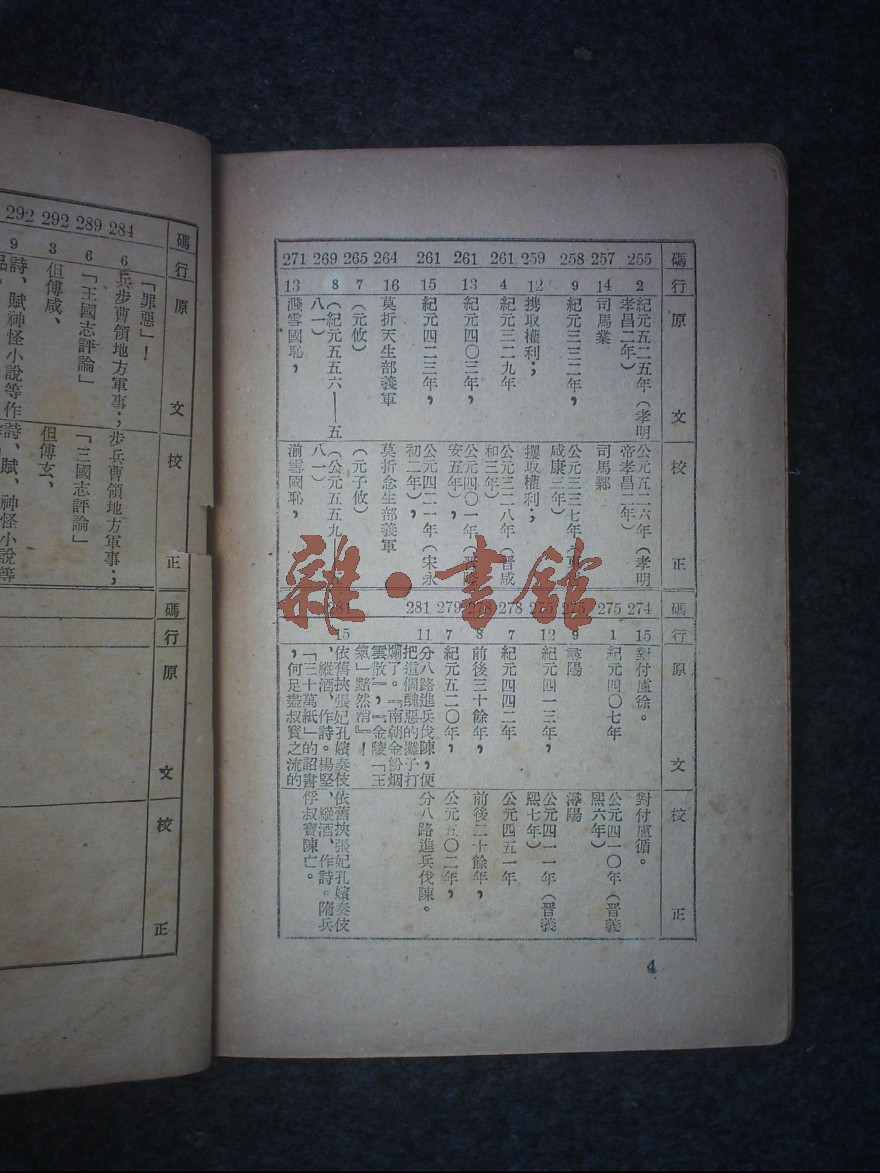 碼 行 原文 校正
255 2 紀元五二五年（孝明孝昌二年） 公元五二六年（孝明帝孝昌二年）
257 14 司馬業 司馬鄴
258 9 紀元三三二年， 公元三三七年 咸康三年）
259 12 携取權利； 攫取權利；
261 4 紀元三二九年 公元三二八年（晋咸和三年）
261 13 紀元四〇三年， 公元四〇一年（晋隆安五年），
261 15 紀元四二三年， 公元四二一年（宋永初二年），
264 16 莫折天生部義軍 莫折念生部義軍
265 7 （元攸） （元子攸）
269 8 （紀元五五六——五八一） （公元五五九 八一）
271 13 濺雪國恥， 湔雪國恥，
碼 行 原文 校正
274 15 對付盧徐。 對付盧循。
275 1 紀元四〇七年 公元四一〇年（晋義熙六年）
275 9 尋陽 潯陽
275 12 紀元四一三年， 公元四一一年（晋義熙七年）
278 7 紀元四四二年 公元四五一年
278 8 前後三十餘年， 前後二十餘年，
279 7 紀元五二〇年， 公元五〇二年，
281 11 分八路進兵伐陳，便把這個醜惡的攤子打爛了。『南朝金粉烟雲散』，『金陵「王氣」黯然消』！ 分八路進兵伐陳。
281 15 依舊挾張妃孔嬪奏伎、縱酒、作詩。楊堅「三十萬紙」的詔書，何足盡叔寶之流的 依舊挾張妃孔嬪奏伎、縱酒、作詩。隋兵俘叔寶陳亡。
4
碼 行 原文 校正
「罪惡」！
284 6 兵步曹領地方軍事； 步兵曹領地方軍事；
289 6 「王國志評論」 「三國志評論」
292 3 但傅咸、 但傅玄、
292 9 詩、賦神怪小說等作 詩、賦、神怪小說等
碼 行 原文 校正
雜·書館